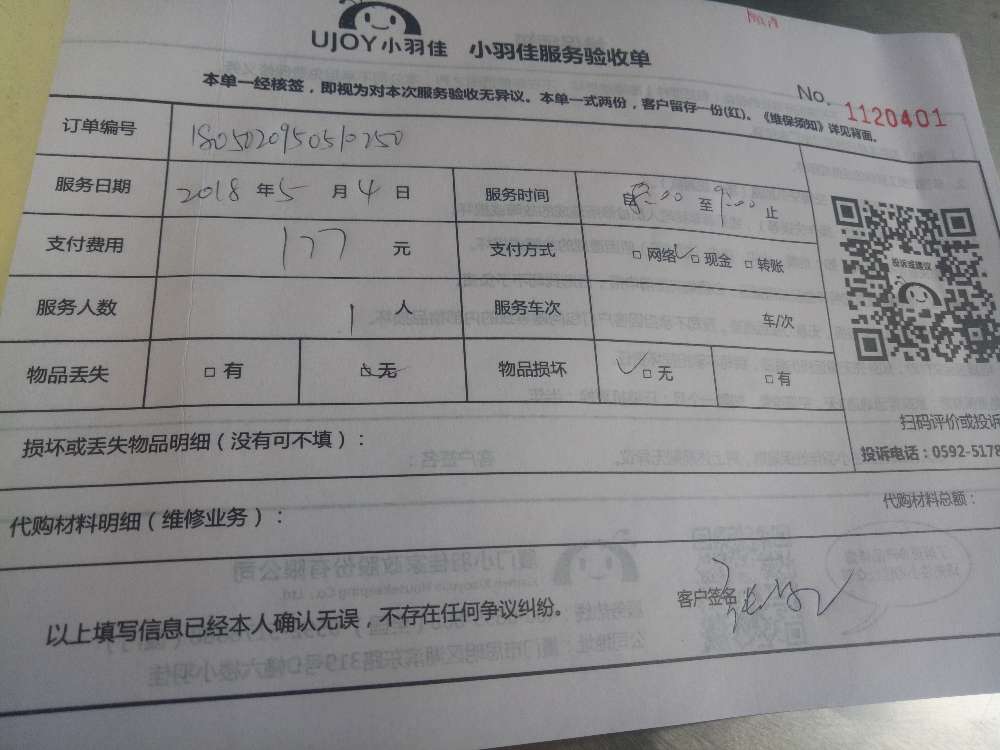 UJOY小羽佳 小羽佳服务验收单
本单一经核签，即视为对本次服务验收无异议。本单一式两份，客户留存一份(红)。《维保须知》详见背面。
No. 1120401
订单编号 1805020950510250
服务日期 2018 年 5 月 4 日 服务时间 8:00 至 9:00 止
支付费用 177 元 支付方式 □ 网络 □ 现金 □ 转账
投诉或建议
服务人数 1 人 服务车次 车/次
物品丢失 □ 有 □ 无 物品损坏 □ 无 □ 有
扫码评价或投诉
投诉电话：0592-5178
损坏或丢失物品明细（没有可不填）：
代购材料明细（维修业务）： 代购材料总额：
以上填写信息已经本人确认无误，不存在任何争议纠纷。 客户签名